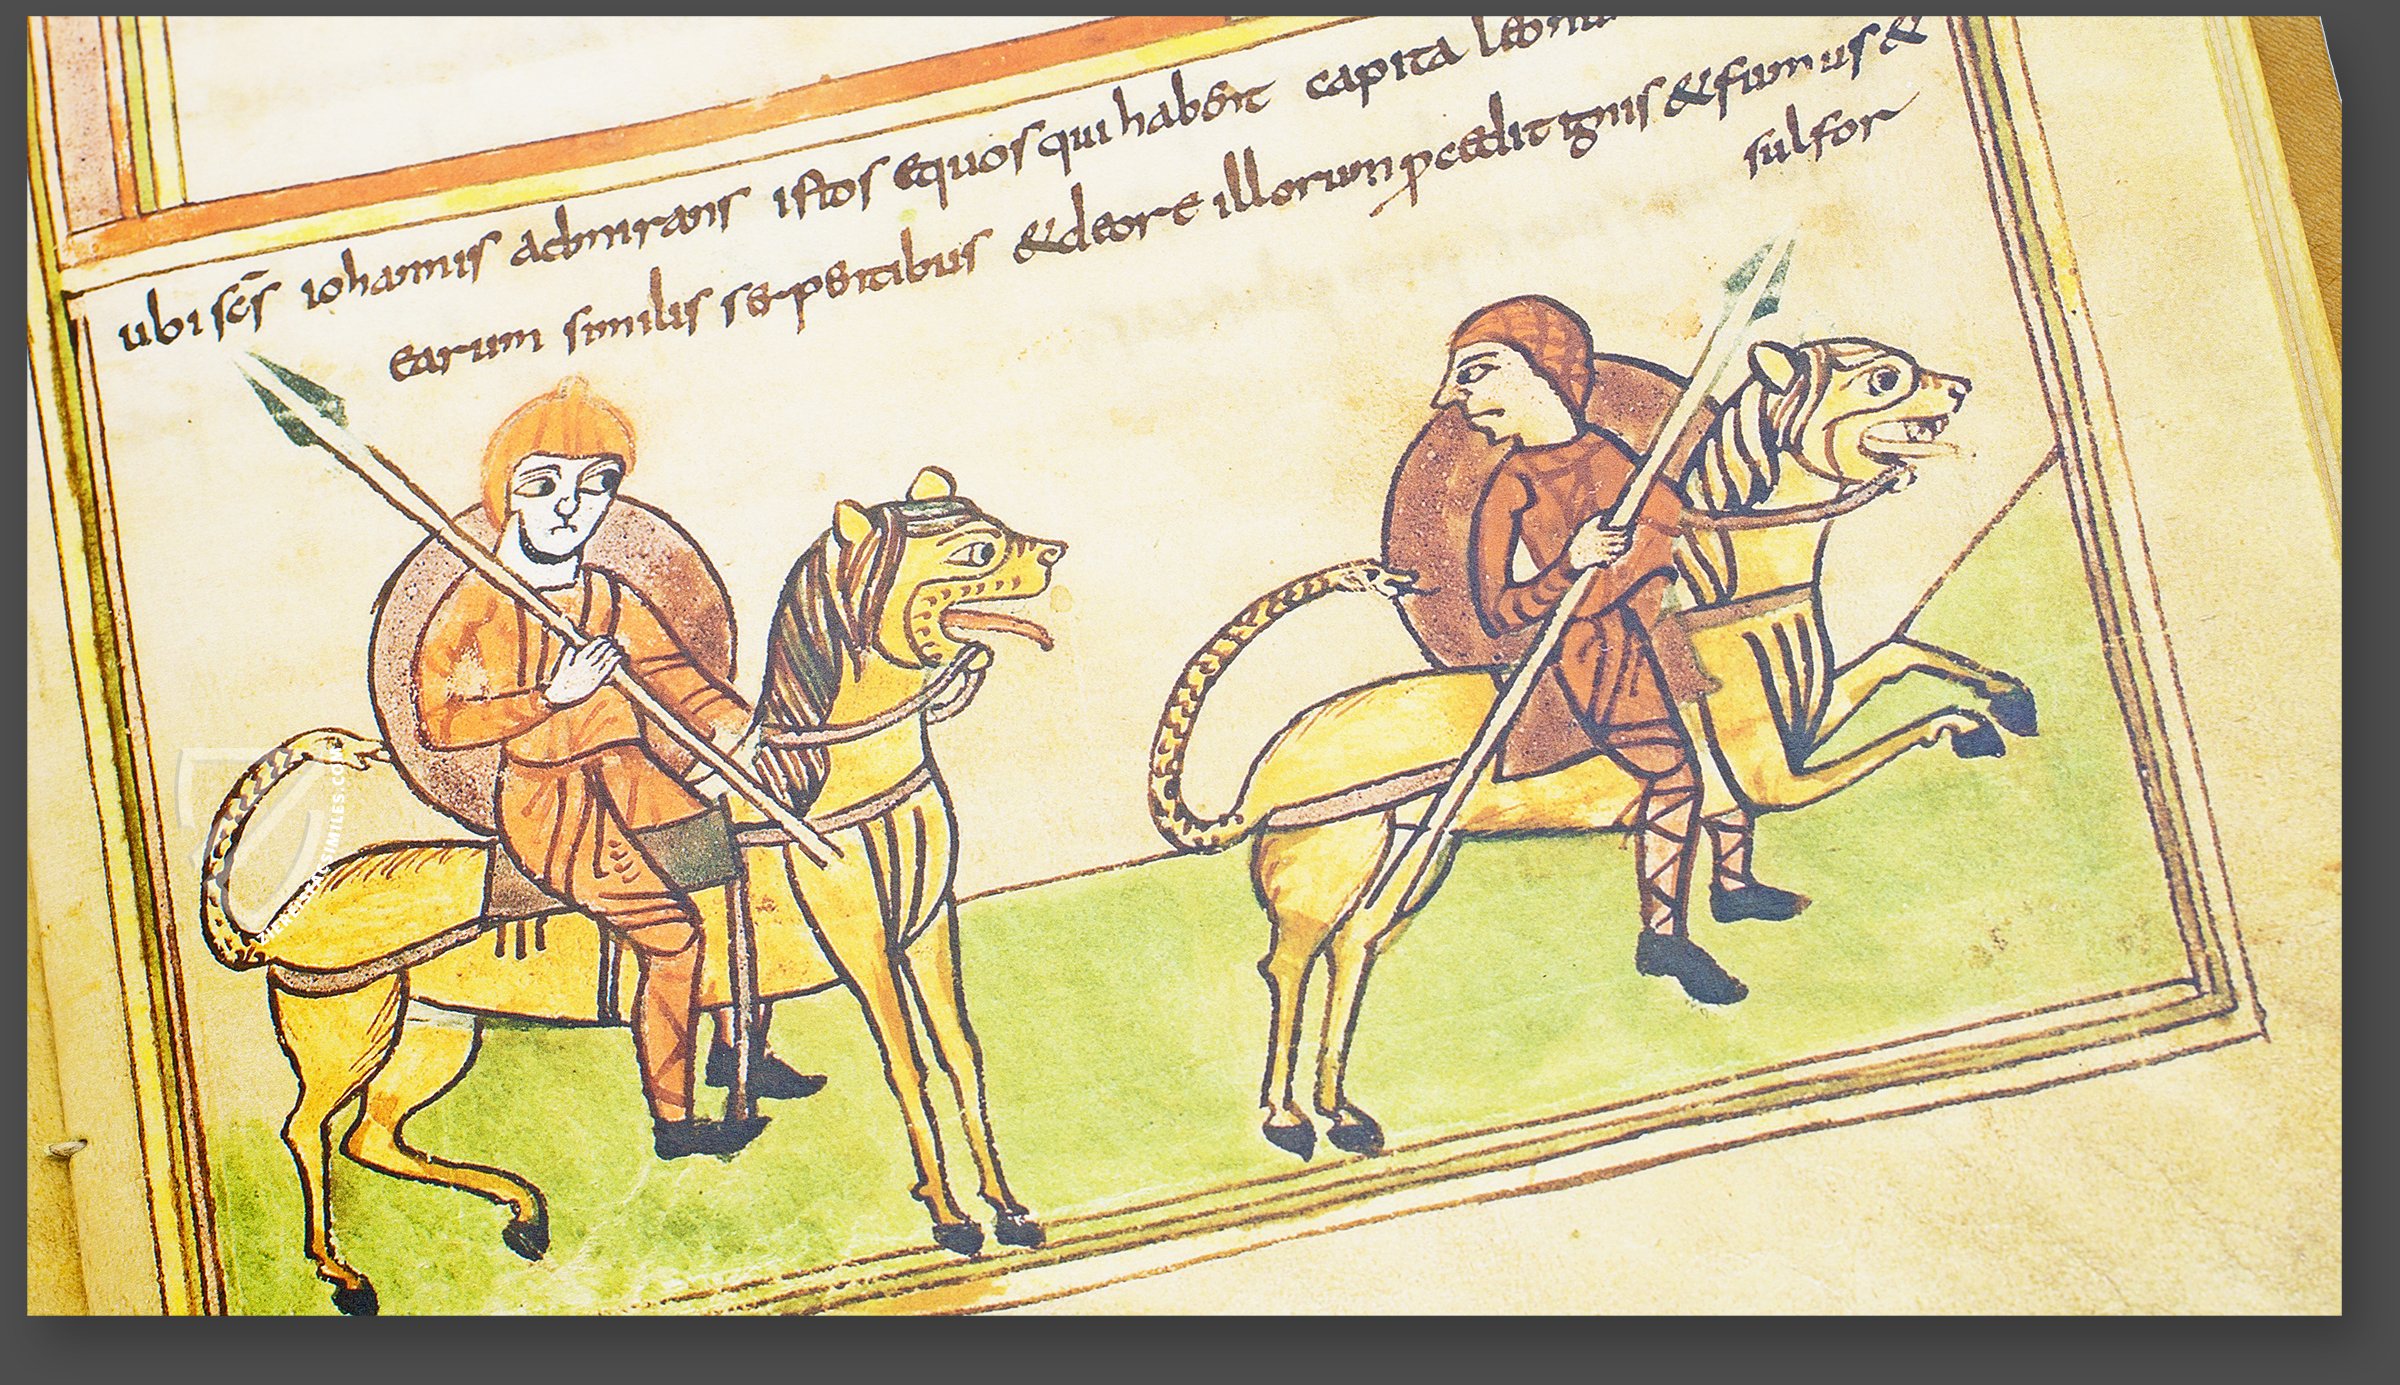 ubi scs iohannis admirans istos equos qui habent capita
earum similis serpentibus & de ore illorum pcedit ignis & fumus &
sulfor